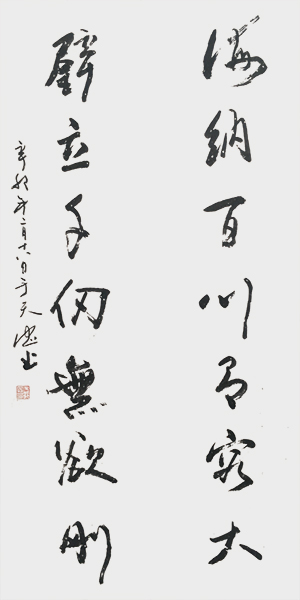 海納百川有容大
壁立千仞無欲刚
辛卯年二月十八日于天